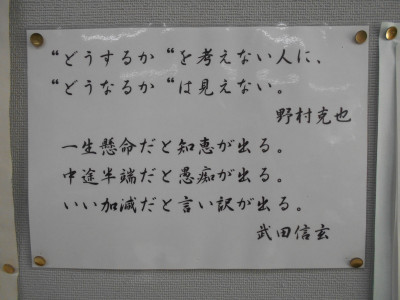 “どうするか“を考えない人に、
“どうなるか“は見えない。
野村克也
一生懸命だと知恵が出る。
中途半端だと愚痴が出る。
いい加減だと言い訳が出る。
武田信玄